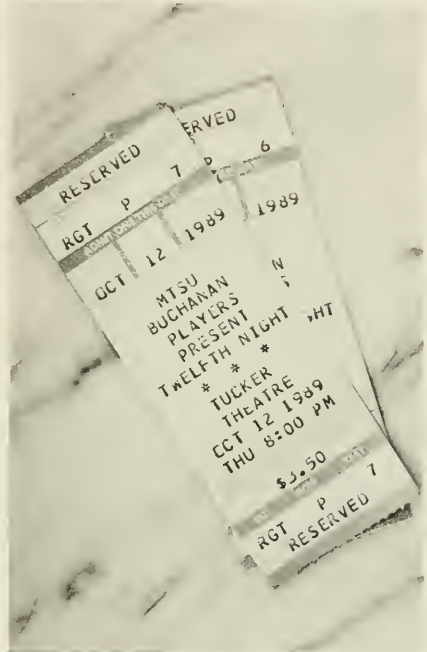 RESERVED
RGT P 7
OCT 12 1989
MTSU
BUCHANAN
PLAYERS
PRESENT
TWELFTH NIGHT
* * *
TUCKER
THEATRE
OCT 12 1989
THU 8:00 PM
$3.50
RGT P 7
RESERVED
ERVED
P 6
1989
N
HT